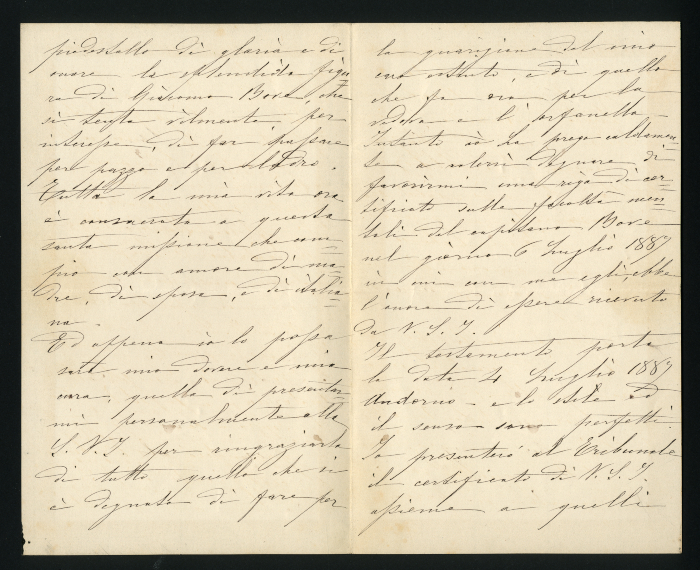 piedestallo di gloria e di
onore la splendida figu=
ra di Giacomo Bove, che
si tenta vilmente per
interesse, di far passare
per pazzo e per ladro.
Tutta la mia vita ora
è consacrata a questa
santa missione che com=
pio con amore di ma=
dre, di sposa, e di italia=
na.
Ed appena io lo possa
sarà mio dovere e mia
cura, quella di presentar=
mi personalmente alla
S. V. I. per ringraziarla
di tutto quello che si
è degnata di fare per
la guarigione del mio
caro estinto, e di quello
che fa ora per la
vedova e l'orfanella.
Intanto io la prego caldamen=
te a volermi Signore di
favorirmi una riga di cer=
tificato sulle facoltà men=
tali del capitano Bove
nel giorno 6 Luglio 1887
in cui con me egli ebbe
l'onore di essere ricevuto
da V. S. I.
Il testamento porta
la data 4 Luglio 1887
Andorno - e lo stile ed
il senso sono perfetti.
Io presenterò al Tribunale
il certificato di V. S. I.
assieme a quelli